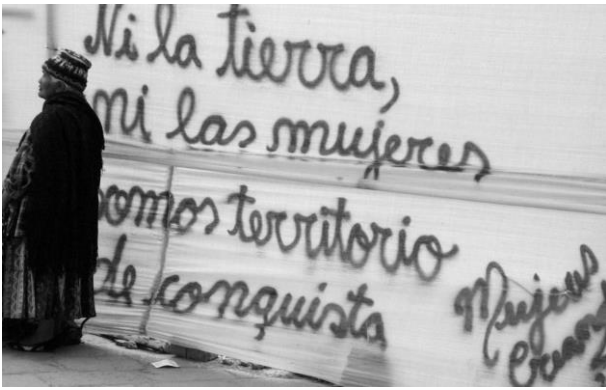 Ni la tierra,
ni las mujeres
somos territorio
de conquista
Mujeres
Crean